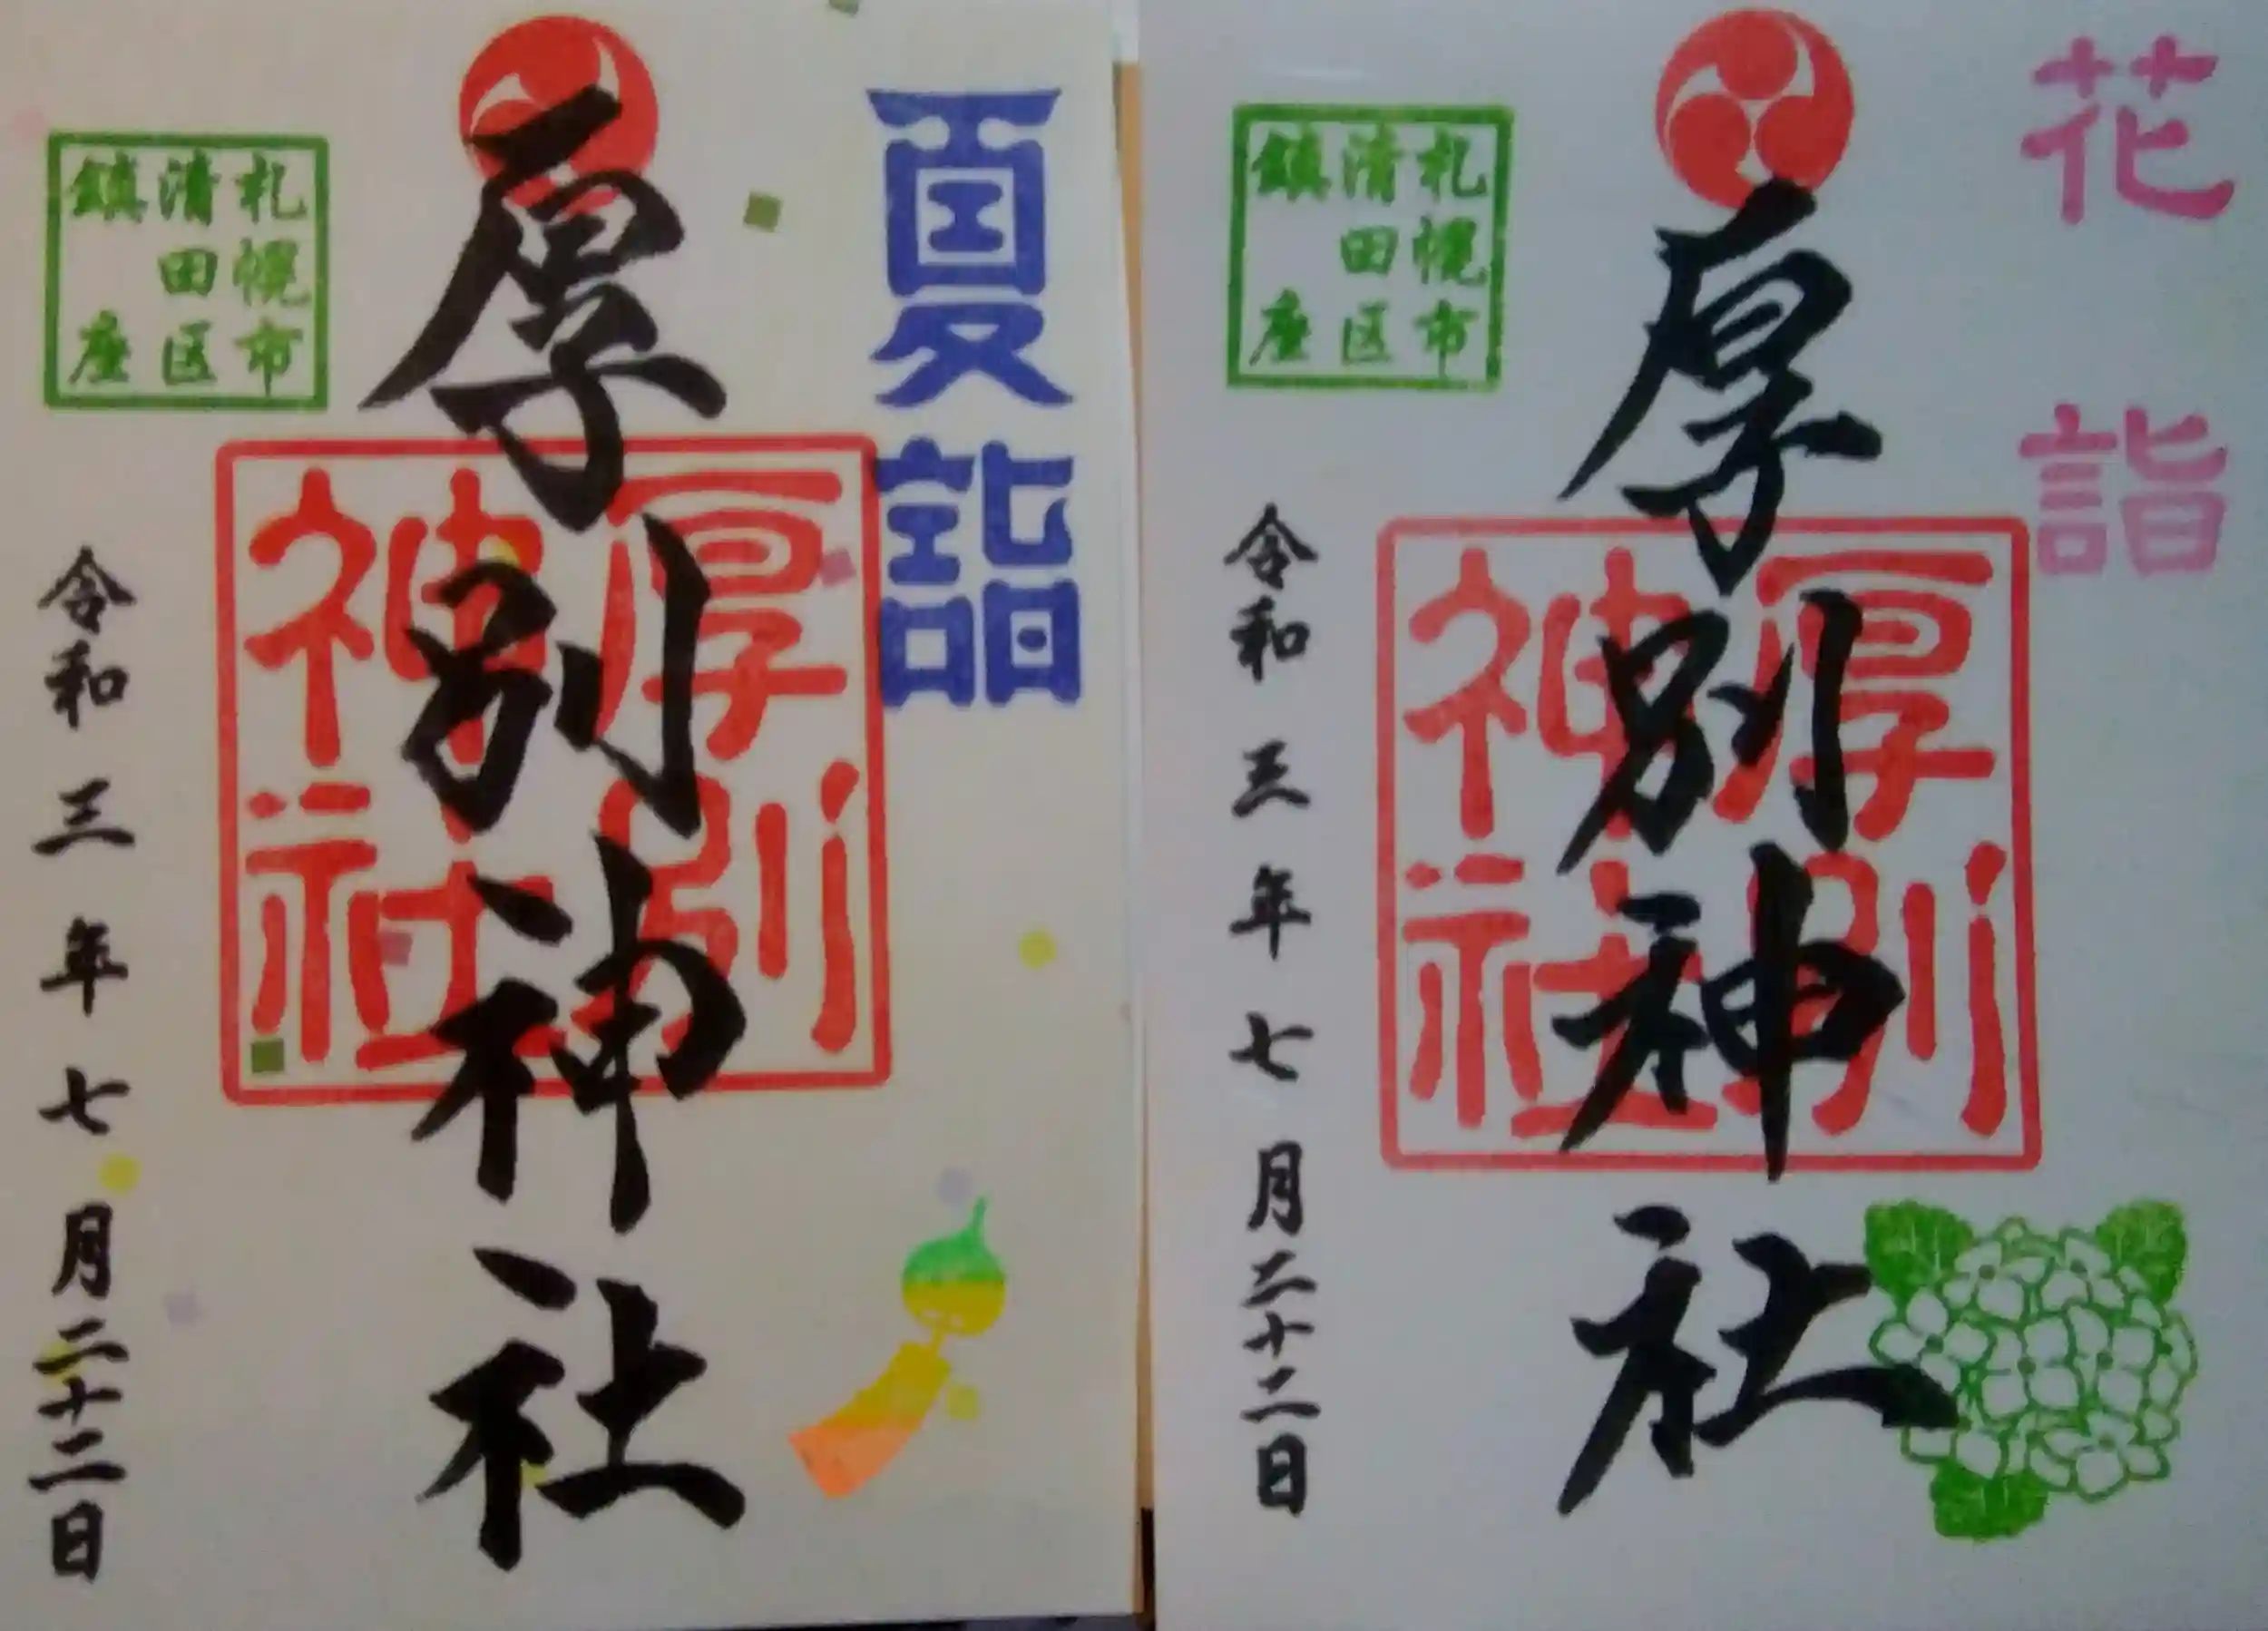 夏詣
厚別神社
厚別
神社
札幌市
清田区
鎮座
令和三年七月二十二日
花詣
厚別神社
厚別
神社
札幌市
清田区
鎮座
令和三年七月二十二日